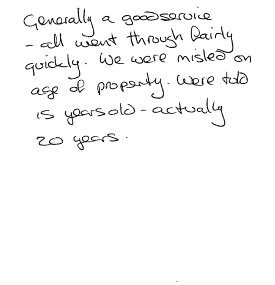 Generally a good service
- all went through fairly
quickly. We were misled on
age of property. Were told
15 years old - actually
20 years.